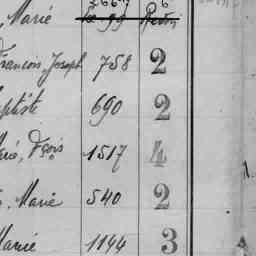 Marie
François Joseph 758 2
ptiste 690 2
Fçois 1517 4
Marie 540 2
Marie 1144 3